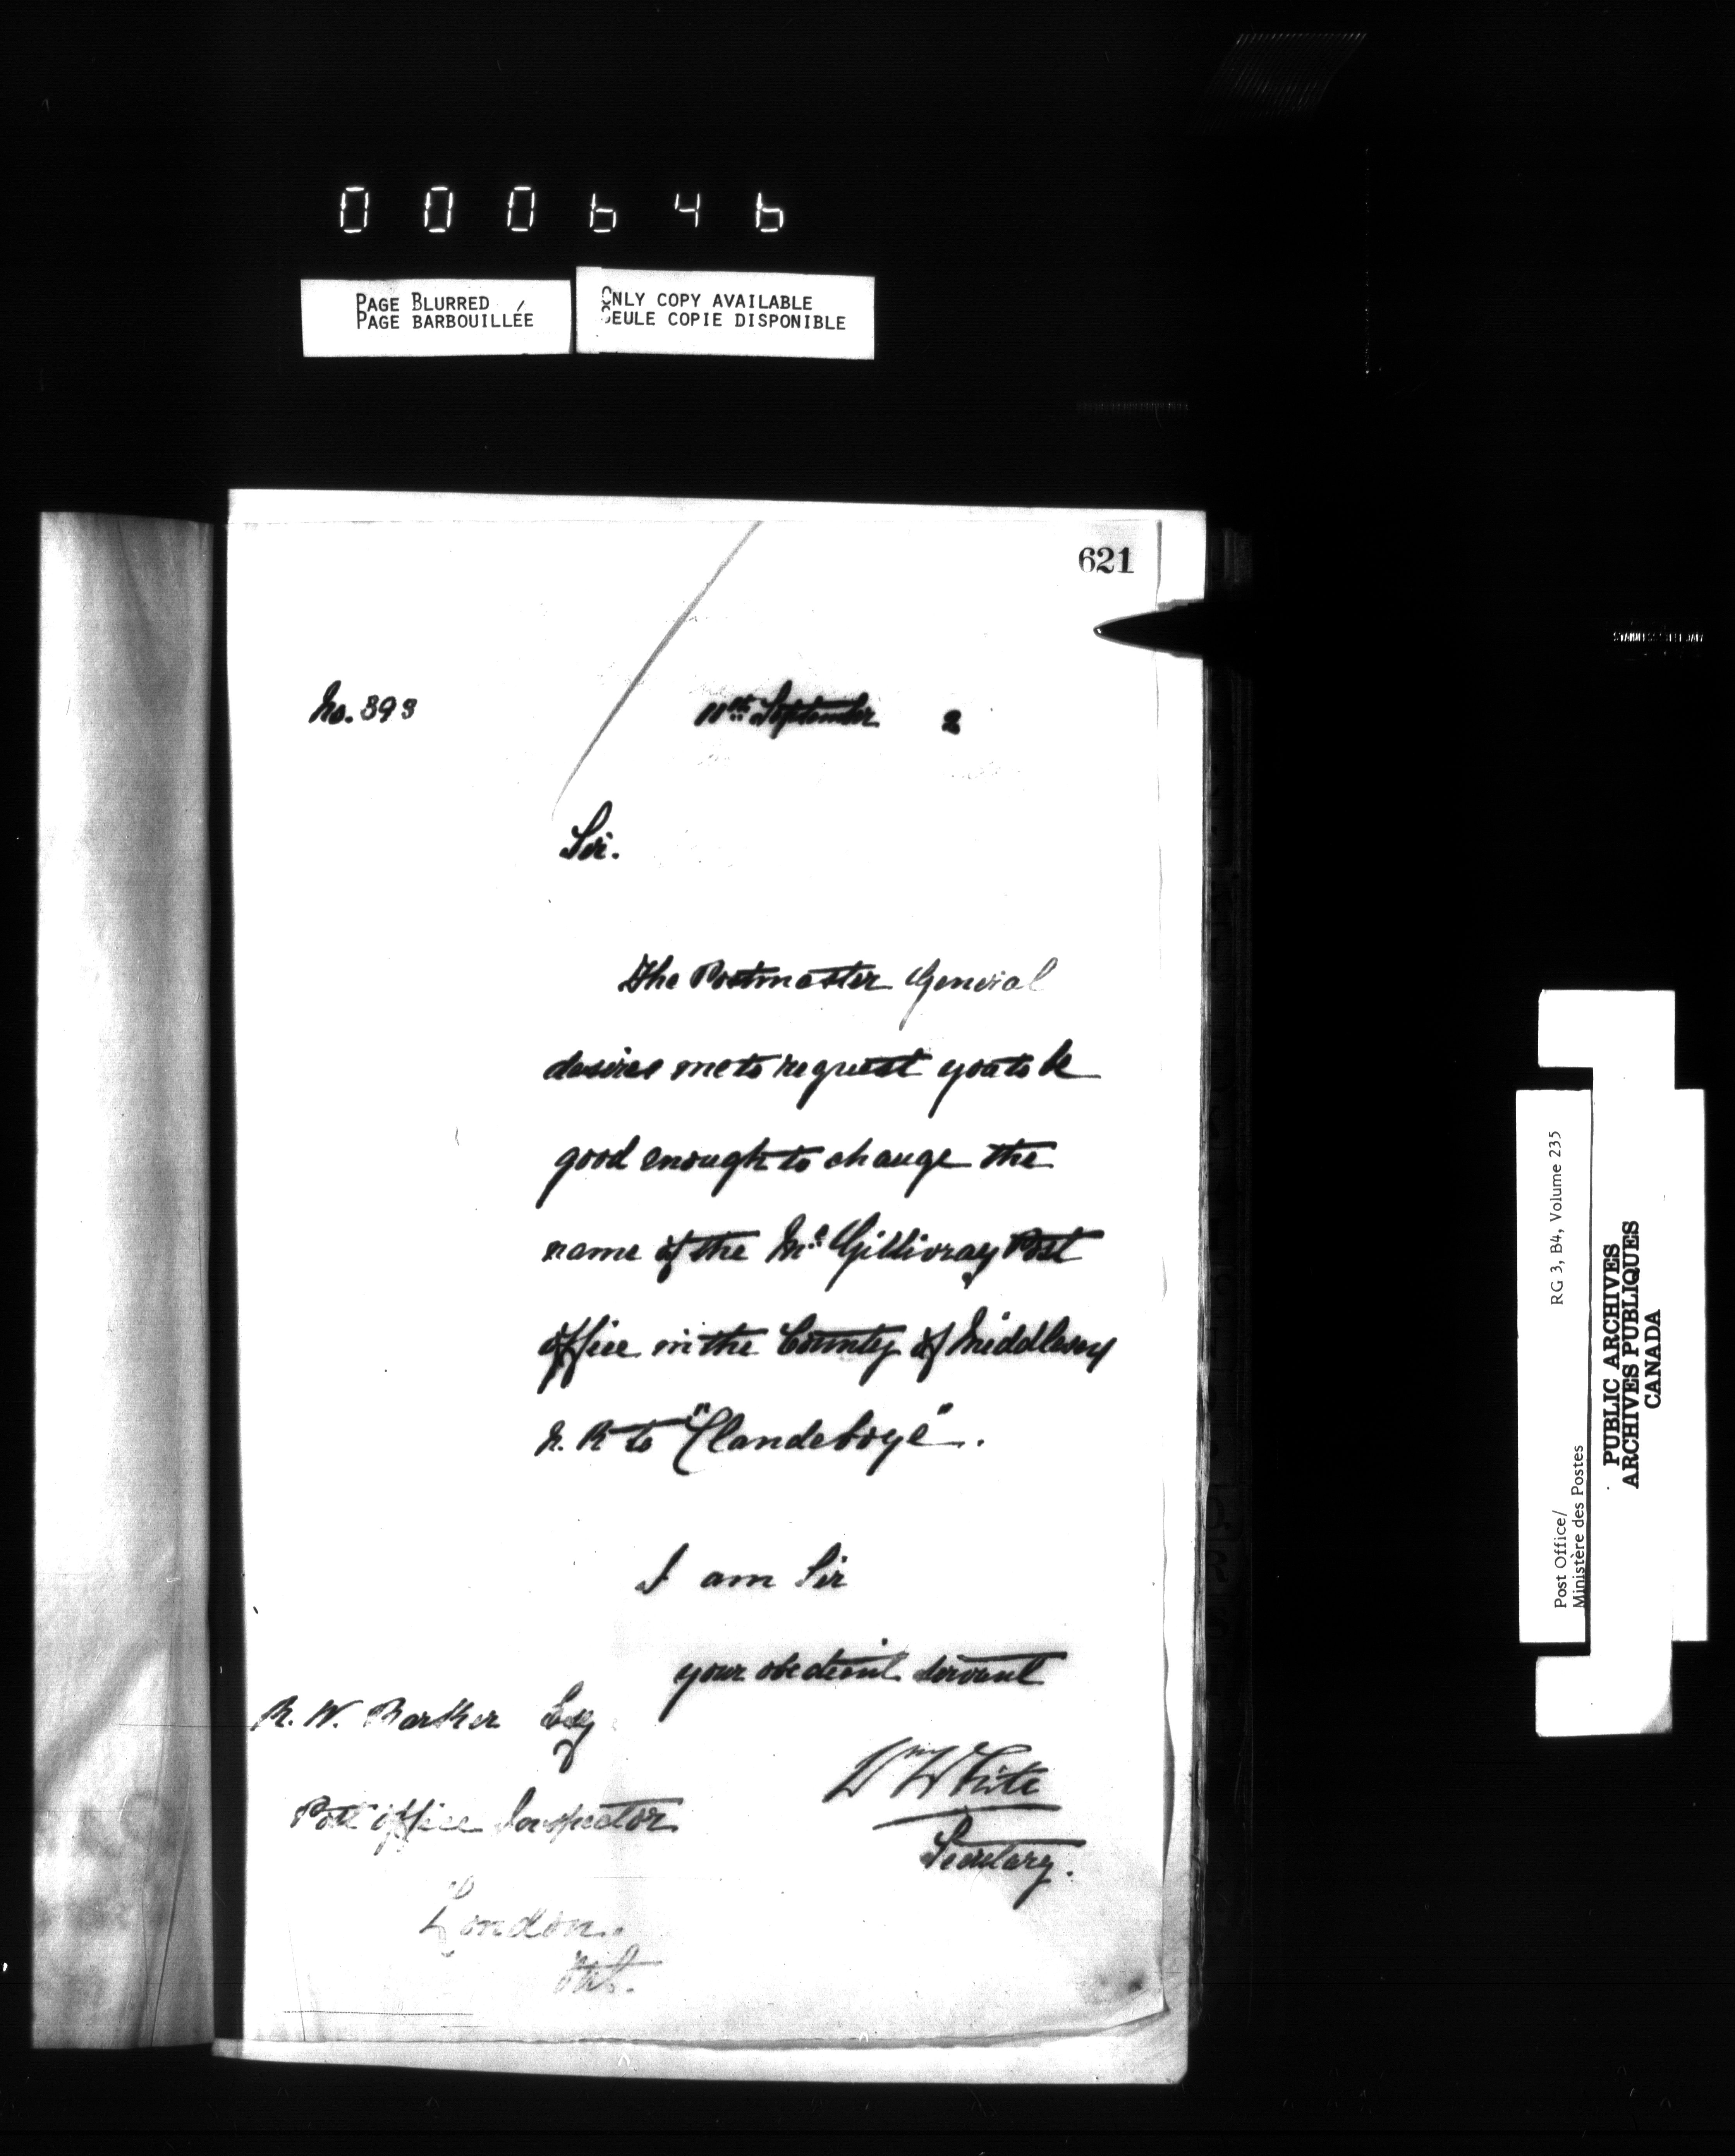 000646
PAGE BLURRED
PAGE BARBOUILLÉE
ONLY COPY AVAILABLE
SEULE COPIE DISPONIBLE
621
No. 393
11th September 2
Sir.
The Postmaster General
desires me to request you to be
good enough to change the
name of the Mc Gillivray Post
office in the County of Middlesex
N. R to "Clandeboye".
I am Sir
your obedient servant
R. W. Barker Esq
Wm White
Post office Inspector
Secretary.
London.
Ont.
Post Office/
Ministère des Postes
RG 3, B4, Volume 235
PUBLIC ARCHIVES
ARCHIVES PUBLIQUES
CANADA